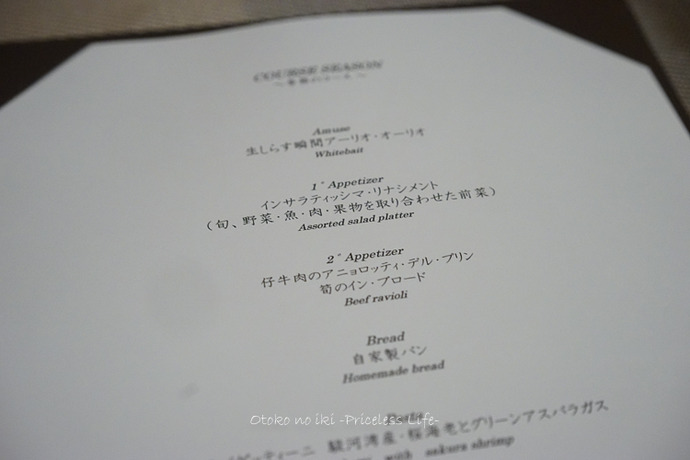 COURSE SEASON
Amuse
生しらす瞬間アーリオ・オーリオ
Whitebait
1° Appetizer
インサラティッシマ・リナシメント
(旬、野菜・魚・肉・果物を取り合わせた前菜)
Assorted salad platter
2° Appetizer
仔牛肉のアニョロッティ・デル・プリン
筍のイン・ブロード
Beef ravioli
Bread
自家製パン
Homemade bread
駿河湾産・桜海老とグリーンアスパラガス
with sakura shrimp
Otoko no iki -Priceless Life-